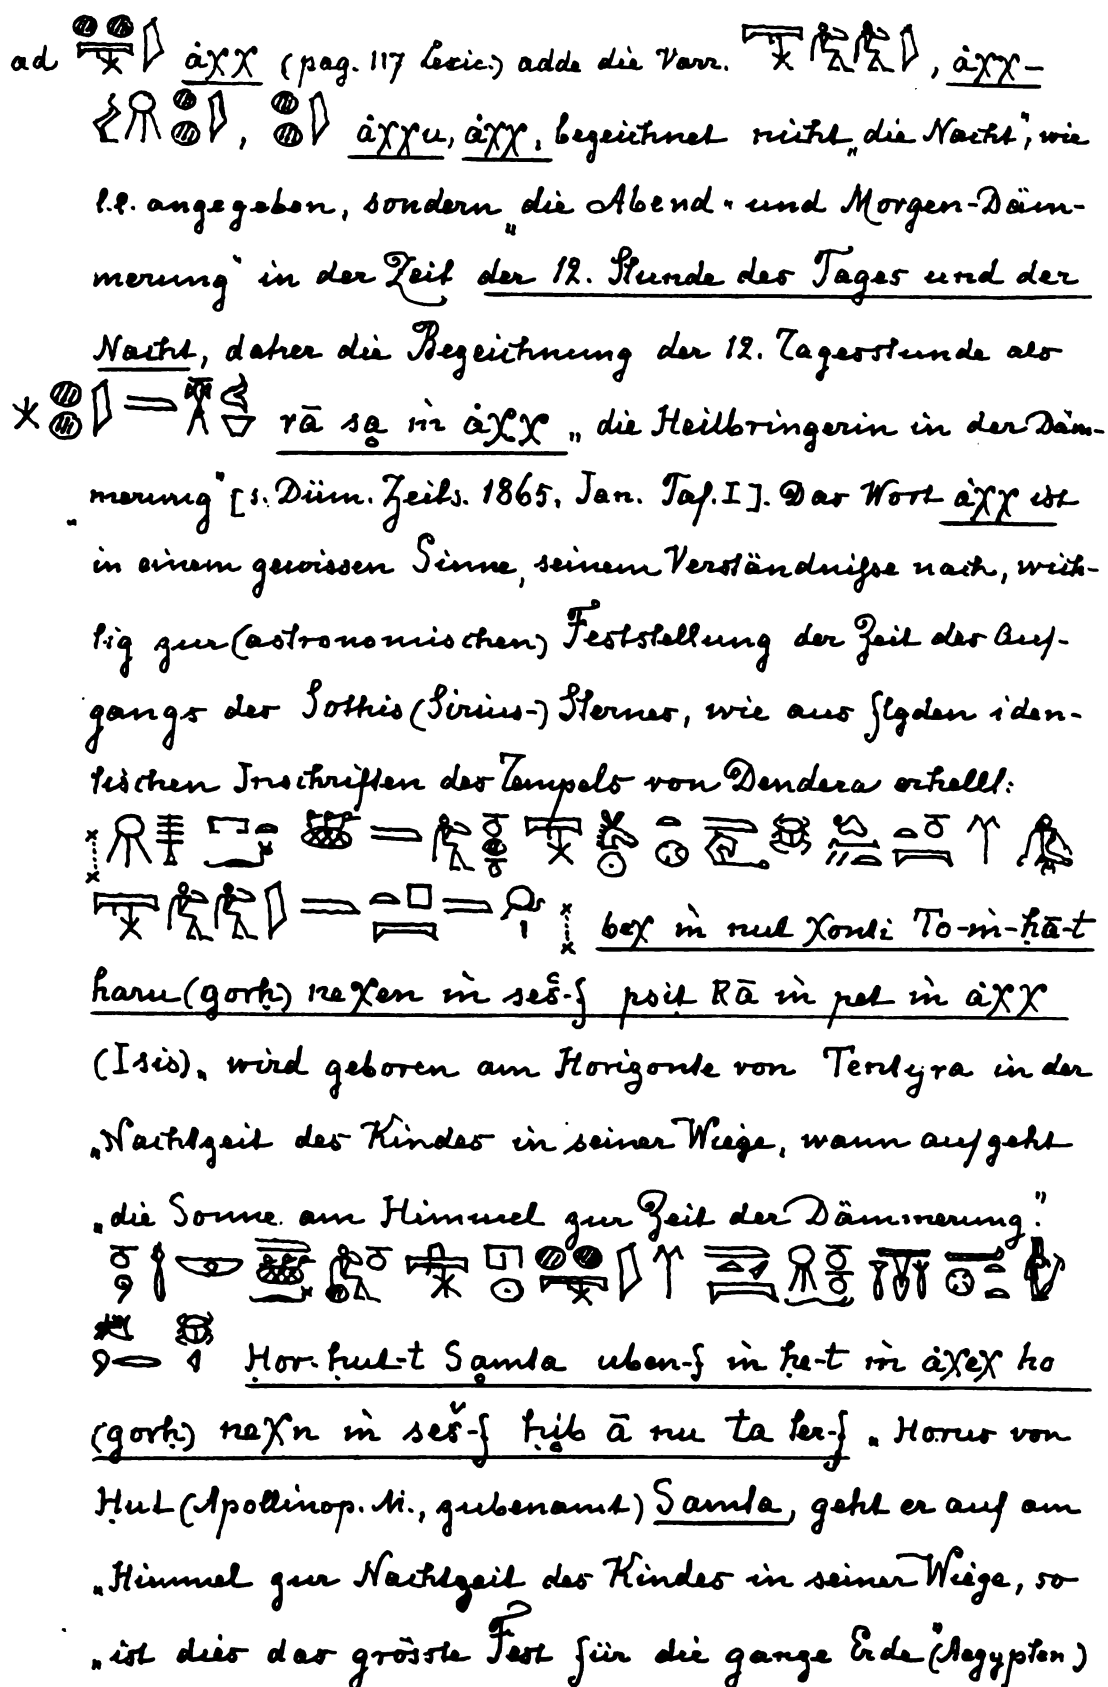 ad ȧχχ (pag. 117 Lexic.) adde die Varr. , ȧχχ-
, ȧχχu, ȧχχ, bezeichnet nicht „die Nacht“, wie
l.l. angegeben, sondern „die Abend- und Morgen-Däm-
merung“ in der Zeit der 12. Stunde des Tages und der
Nacht, daher die Bezeichnung der 12. Tagesstunde als
rā sạ m ȧχχ „die Heilbringerin in der Däm-
„merung“ [s. Düm. Zeits. 1865, Jan. Taf. I]. Das Wort ȧχχ ist
in einem gewissen Sinne, seinem Verständniſse nach, wich-
tig zur (astronomischen) Feststellung der Zeit des Auf-
gangs des Sothis (Sirius-) Sternes, wie aus flgden iden-
tischen Inschriften des Tempels von Dendera erhellt:
beχ m nut χonti To-m-ḥā-t
haru (gorḥ) neχen m seš-f psit Rā m pet m ȧχχ
(Isis) „wird geboren am Horizonte von Tentyra in der
„Nachtzeit des Kindes in seiner Wiege, wann aufgeht
„die Sonne am Himmel zur Zeit der Dämmerung.“
Ḥor-ḥut-t Sạmta uben-f m ḥe-t m ȧχeχ ho
(gorḥ) neχn m seš-f ḥib ā nu ta ter-f „Horus von
Ḥut (Apollinop. M., zubenamt) Samta, geht er auf am
„Himmel zur Nachtzeit des Kindes in seiner Wiege, so
„ist dies das grösste Fest für die ganze Erde“ (Aegypten)